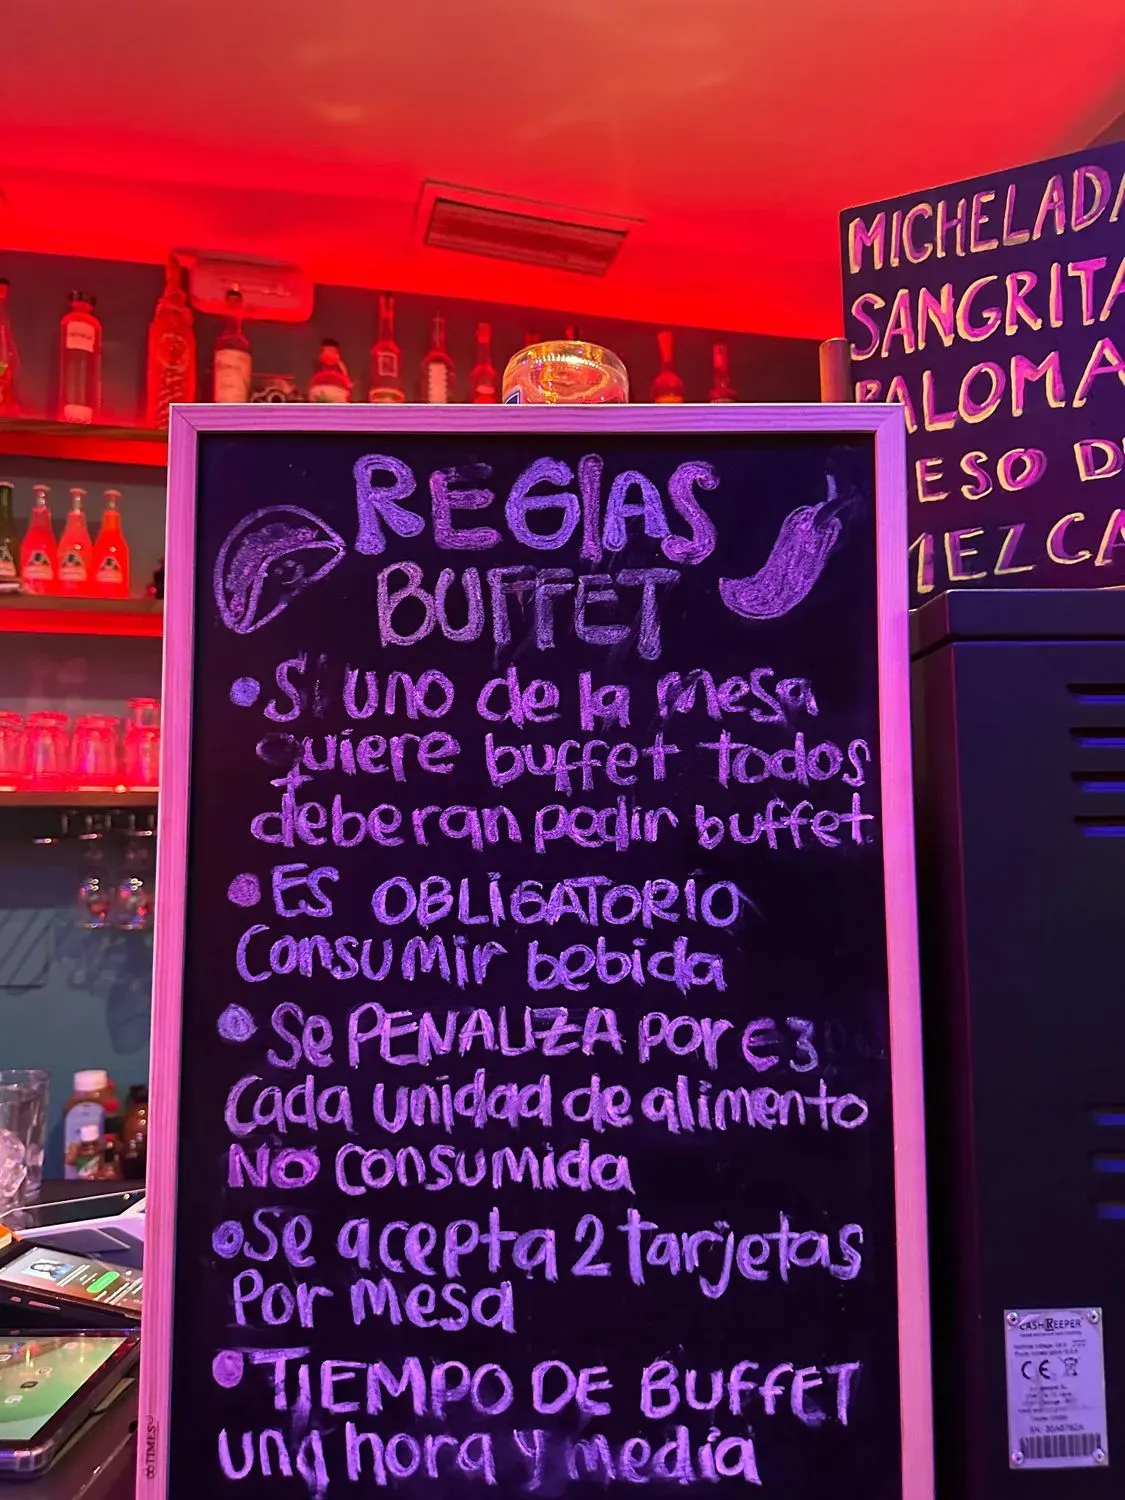 REGLAS
BUFFET
• Si uno de la mesa
quiere buffet todos
deberan pedir buffet
• ES OBLIGATORIO
Consumir bebida
• Se PENALIZA por €3
Cada unidad de alimento
NO consumida
• Se acepta 2 tarjetas
Por mesa
• TIEMPO DE BUFFET
una hora y media
MICHELADA
SANGRITA
PALOMA
ESO D
MEZCA
CASHKEEPER
CE
TIMES